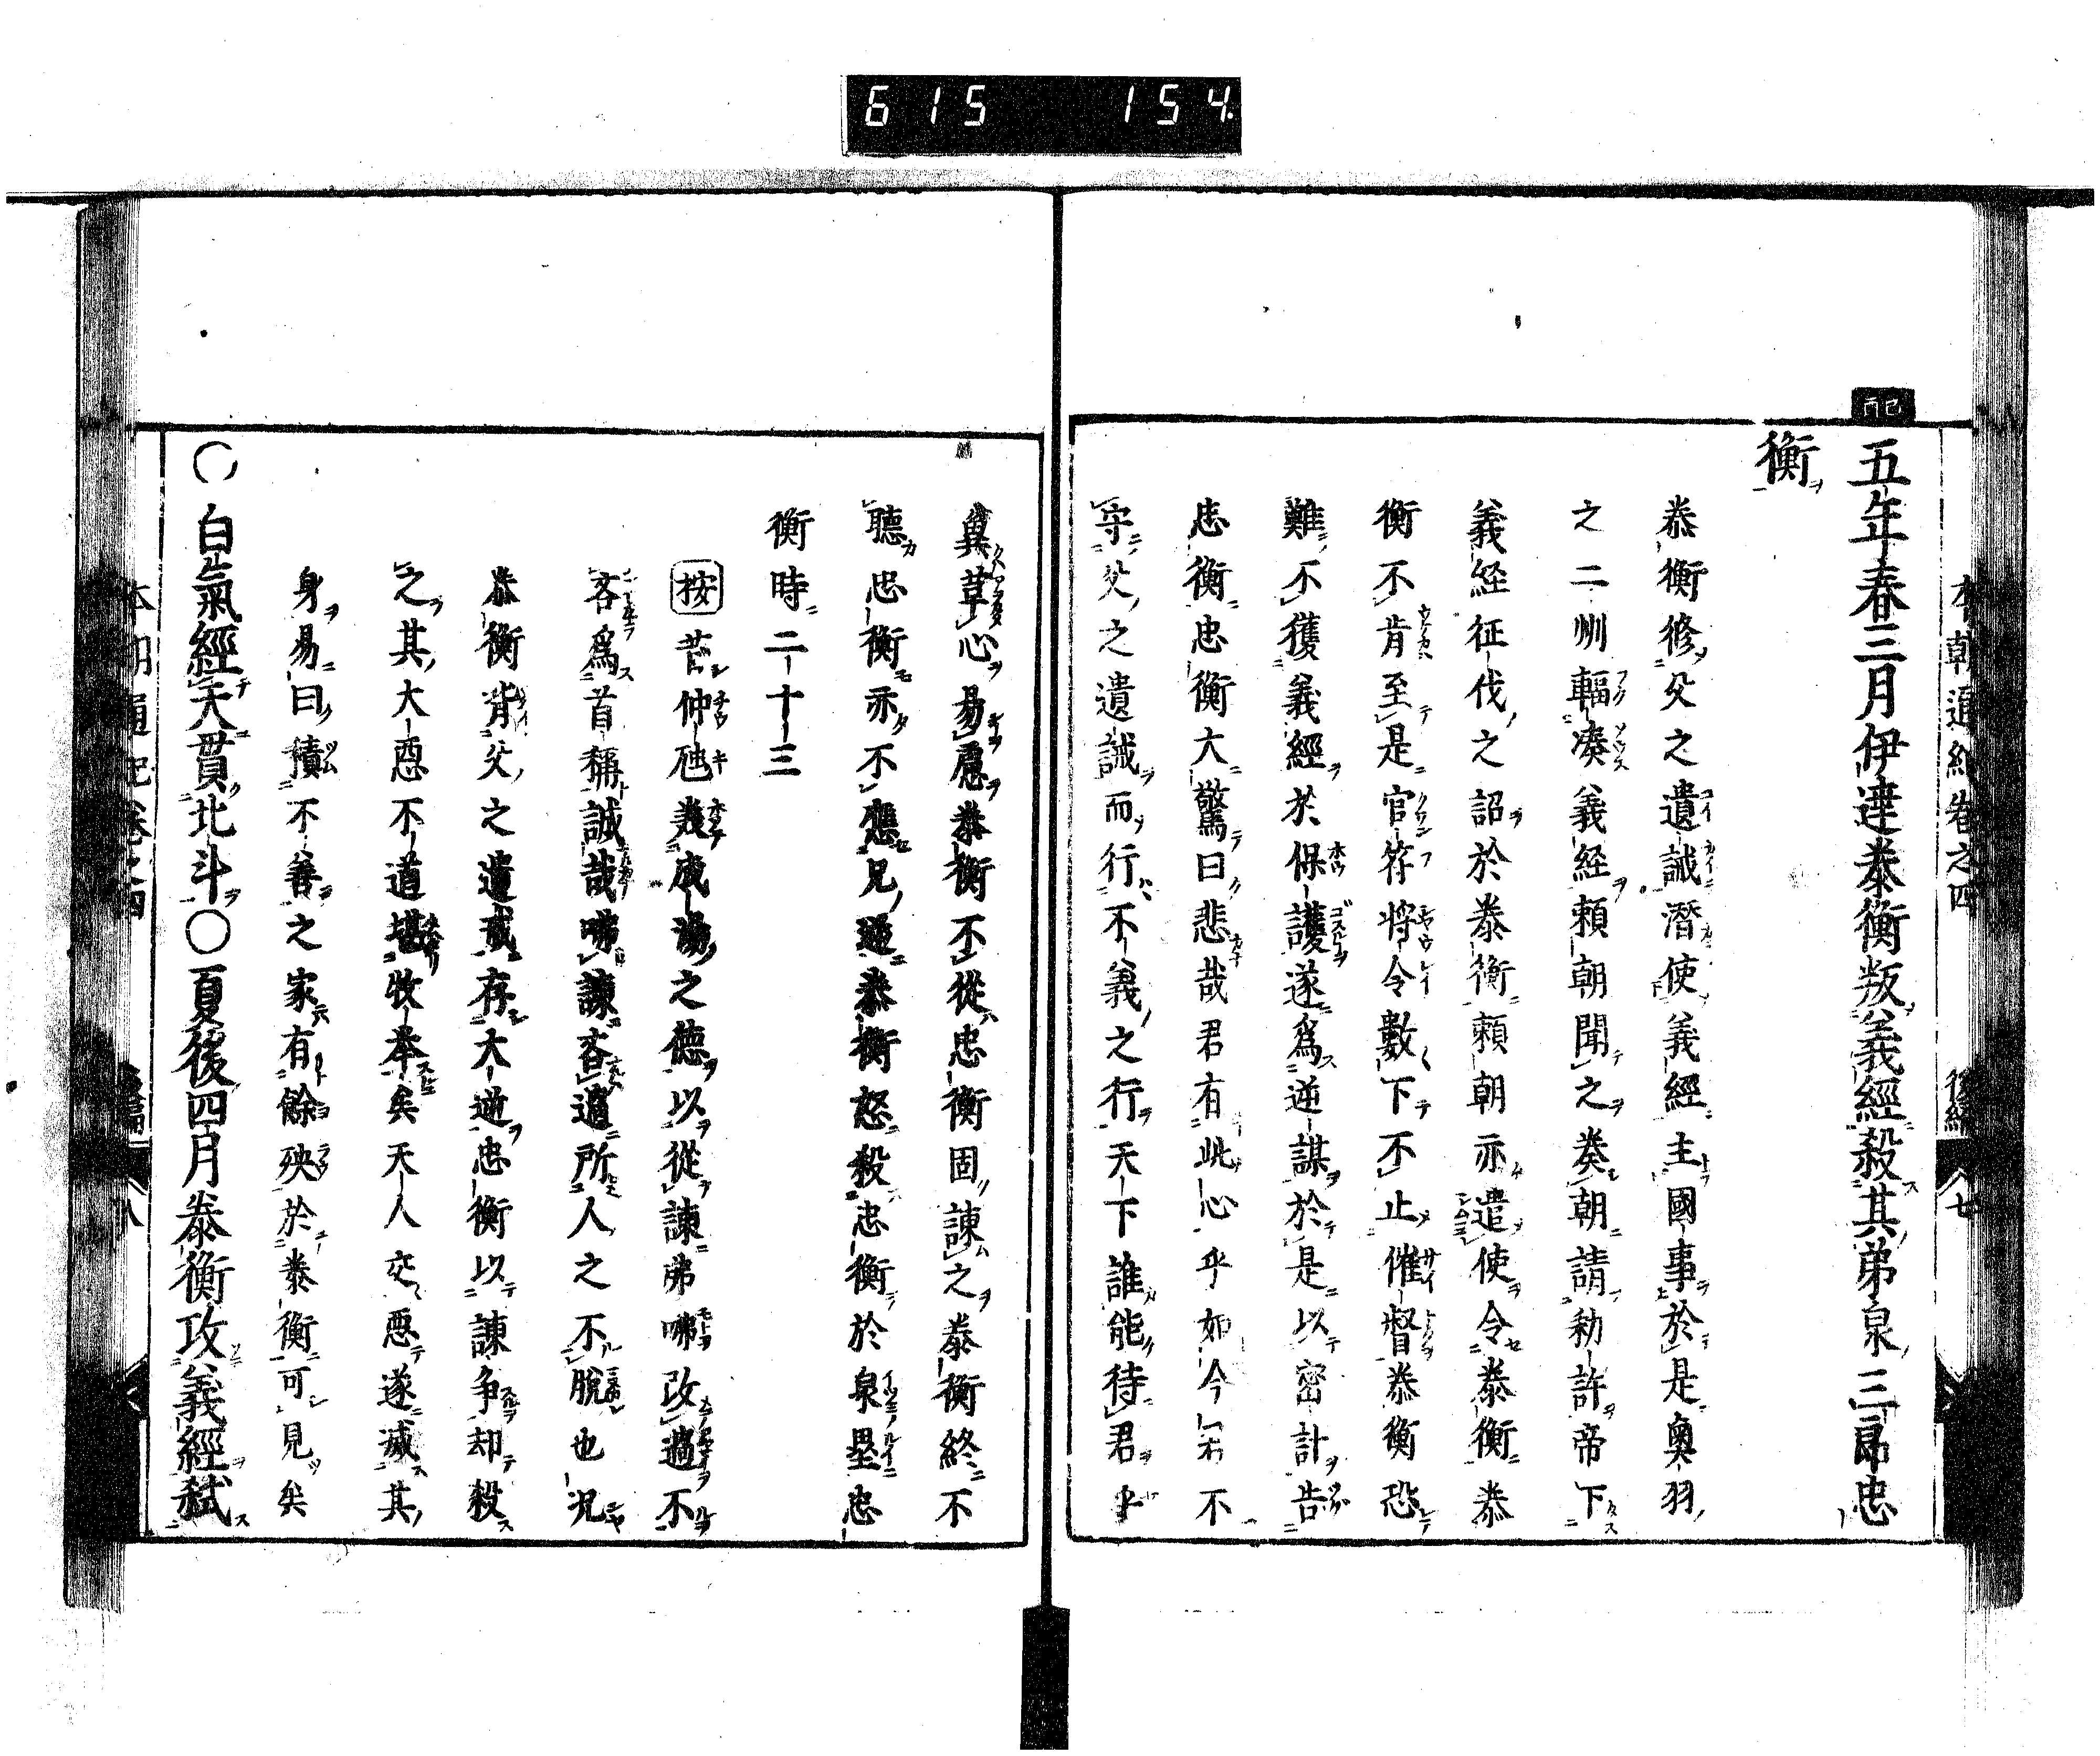 615 154
本朝通紀卷之四 後編 七
己酉
五年春三月伊達泰衡叛義經殺其弟泉三郎忠
衡
泰衡修父之遺誡潛使義經主國事於是奧羽
之二州輻湊義経頼朝聞之奏朝請勅許帝下
義経征伐之詔於泰衡頼朝亦遣使令泰衡泰
衡不肯至是官符將令數下不止催督泰衡恐
難不獲義經於保護遂爲逆謀於是以密計告
忠衡忠衡大驚曰悲哉君有此心乎如今君不
守父之遺誡而行不義之行天下誰能待君乎
冀革心易慮泰衡不從忠衡固諫之泰衡終不
聽忠衡亦不應兄逆泰衡怒殺忠衡於泉壘忠
衡時二十三
按昔仲虺美成湯之德以從諫弗咈改過不
吝爲首稱誠哉咈諫吝過所人之不脫也况
泰衡背父之遺戒存大逆忠衡以諫争却殺
之其大惡不道堪牧牽矣天人交惡遂滅其
身易曰積不善之家有餘殃於泰衡可見矣
○白氣經天貫北斗○夏後四月泰衡攻義經弑
本朝通紀卷之四 後編 八